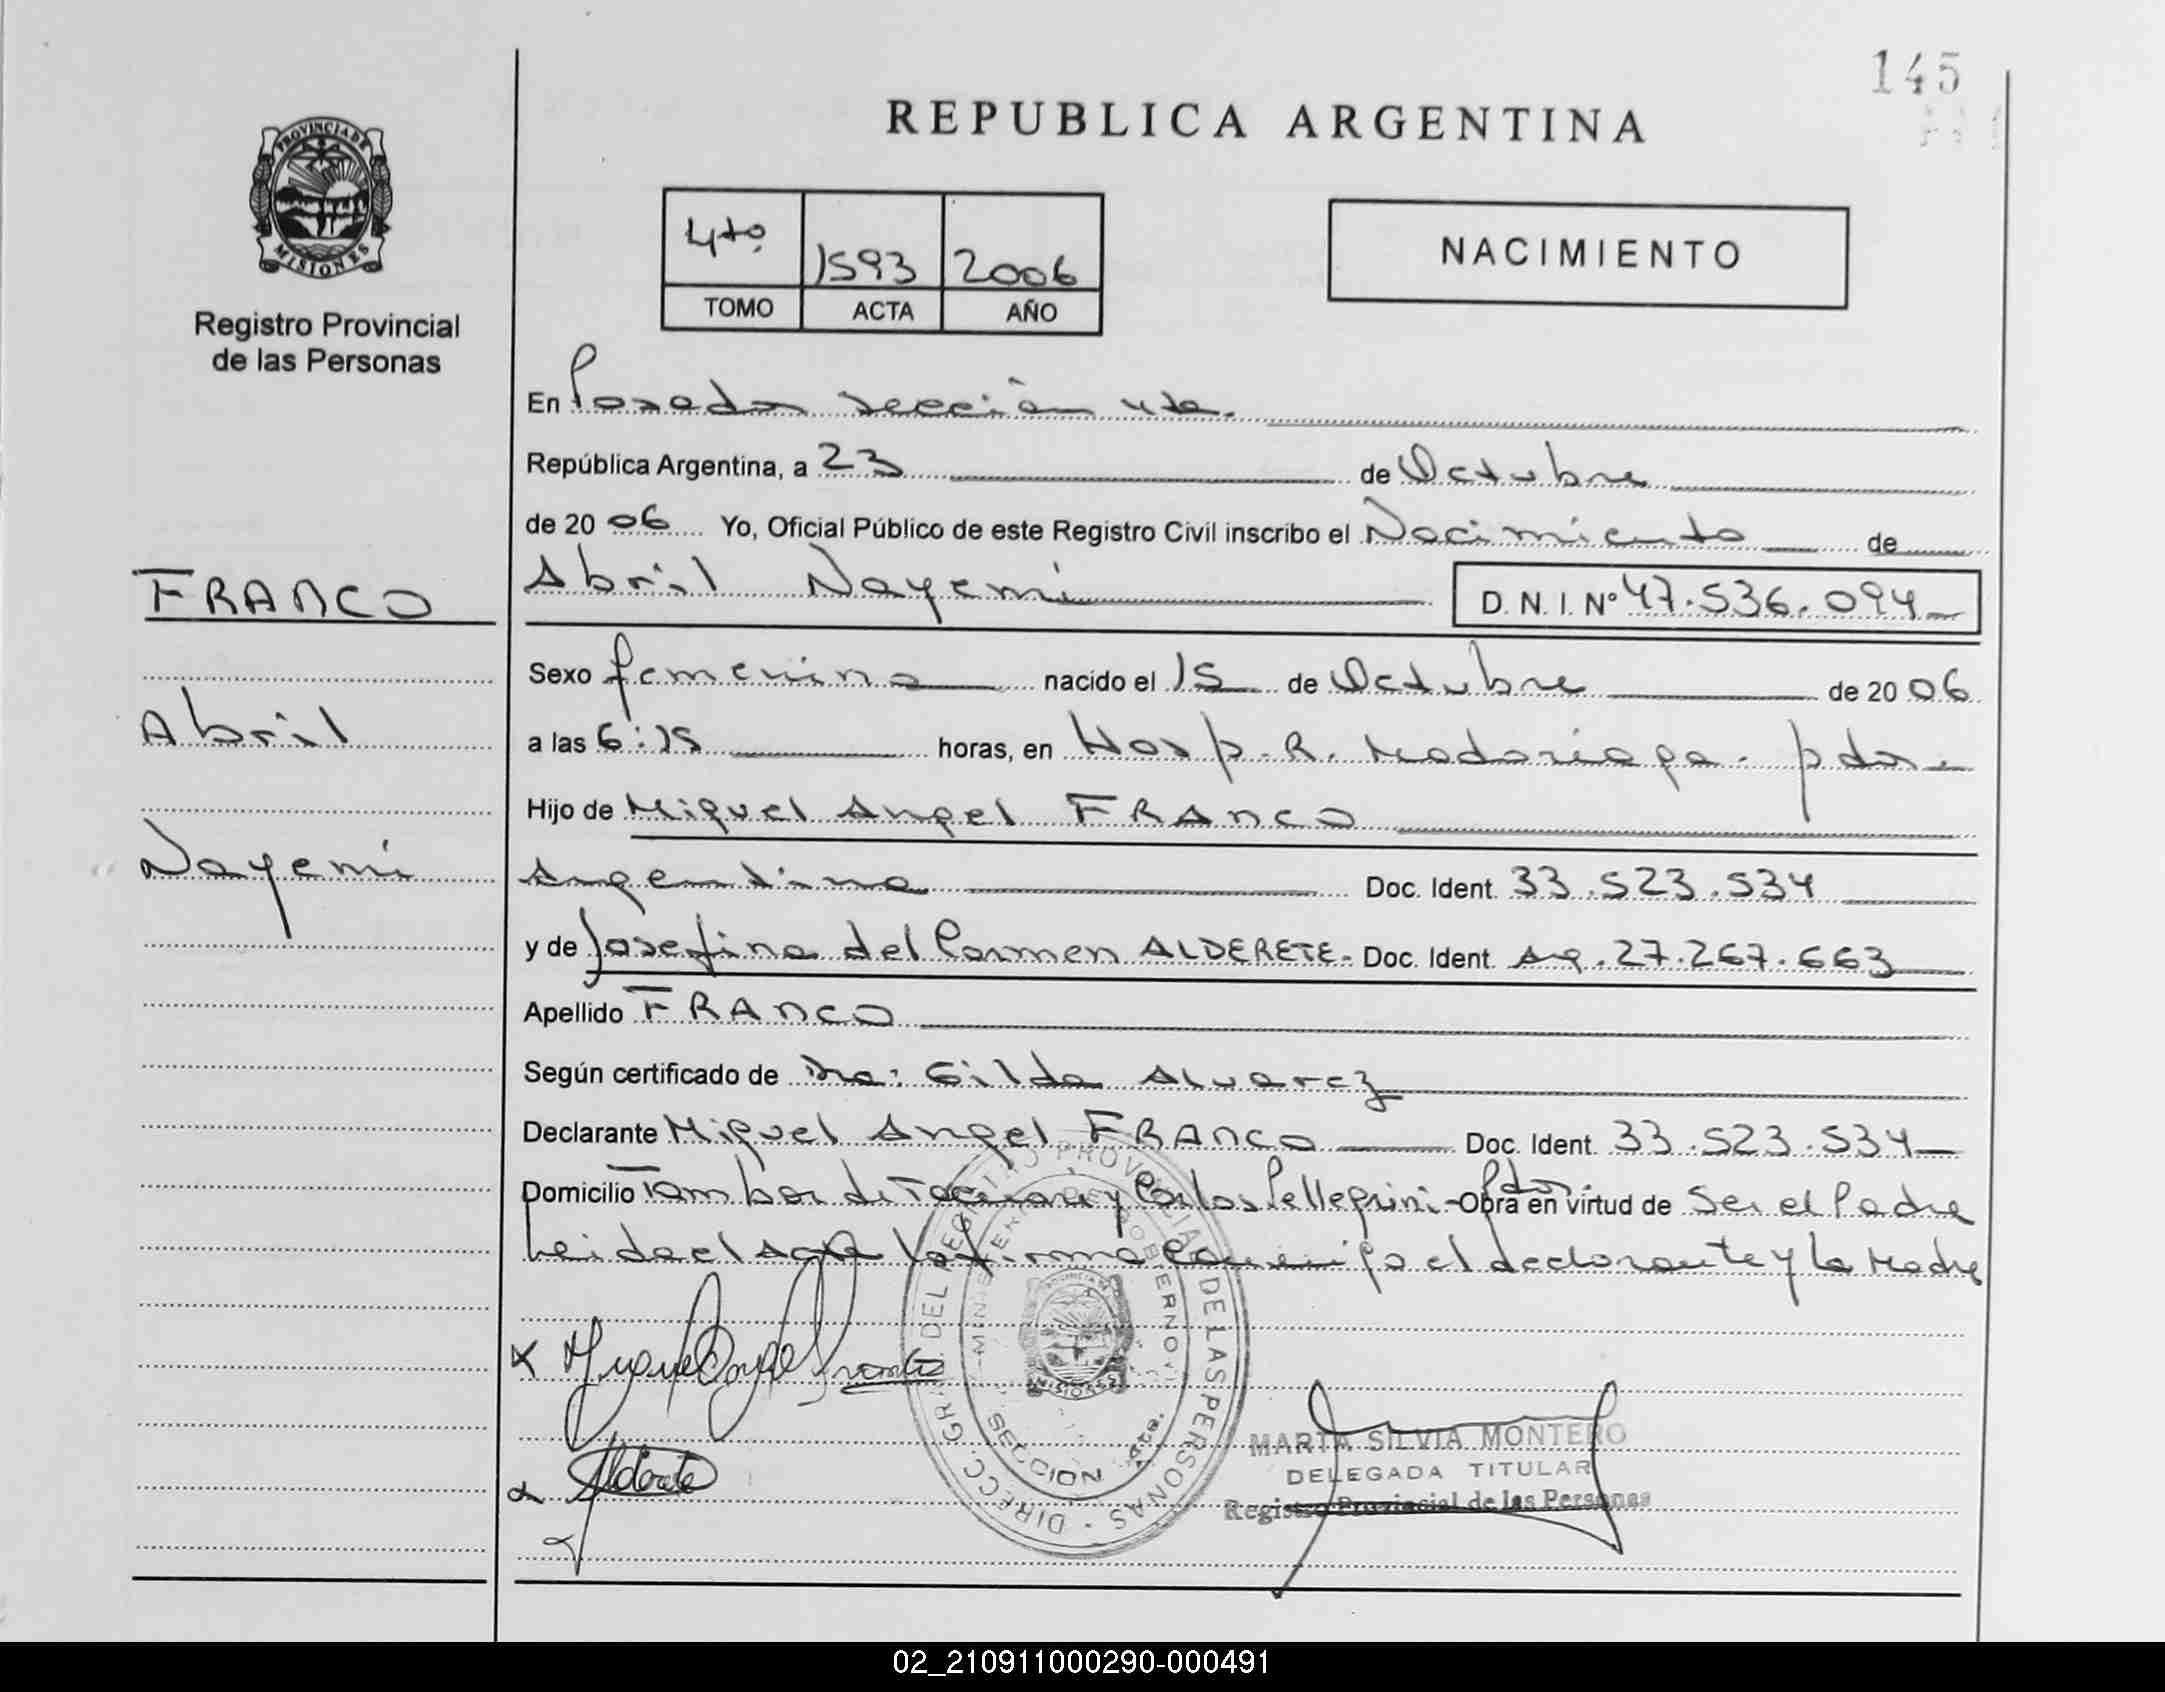 145
REPUBLICA ARGENTINA
PROVINCIA DE
MISIONES
Registro Provincial
de las Personas
4to. 1593 2006
TOMO ACTA AÑO
NACIMIENTO
En Posadas sección 4ta.
República Argentina, a 23 de Octubre
de 2006 Yo, Oficial Público de este Registro Civil inscribo el Nacimiento de
FRANCO
Abril Nayemi D. N. I. Nº 47.536.094
Sexo femenino nacido el 15 de Octubre de 2006
Abril
a las 6:15 horas, en Hosp. R. Madariaga. pdas
Hijo de Miguel Angel FRANCO
Nayemi
Argentina Doc. Ident. 33.523.534
y de Josefina del Carmen ALDERETE- Doc. Ident. Ag. 27.267.663
Apellido FRANCO
Según certificado de Dra: Gilda Alvarez
Declarante Miguel Angel FRANCO Doc. Ident. 33.523.534
Domicilio Tambor de Tacuari y Carlos Pellegrini- Pdas. Obra en virtud de Ser el Padre
Leida el Acta la firma conmigo el declarante y la Madre
x Miguel Angel Franco
x Alderete
DIRECC. GRAL. DEL REGISTRO PROVINCIAL DE LAS PERSONAS
MINISTERIO DE GOBIERNO
MISIONES
SECCION 4ta.
MARTA SILVIA MONTERO
DELEGADA TITULAR
Registro Provincial de las Personas
02_210911000290-000491